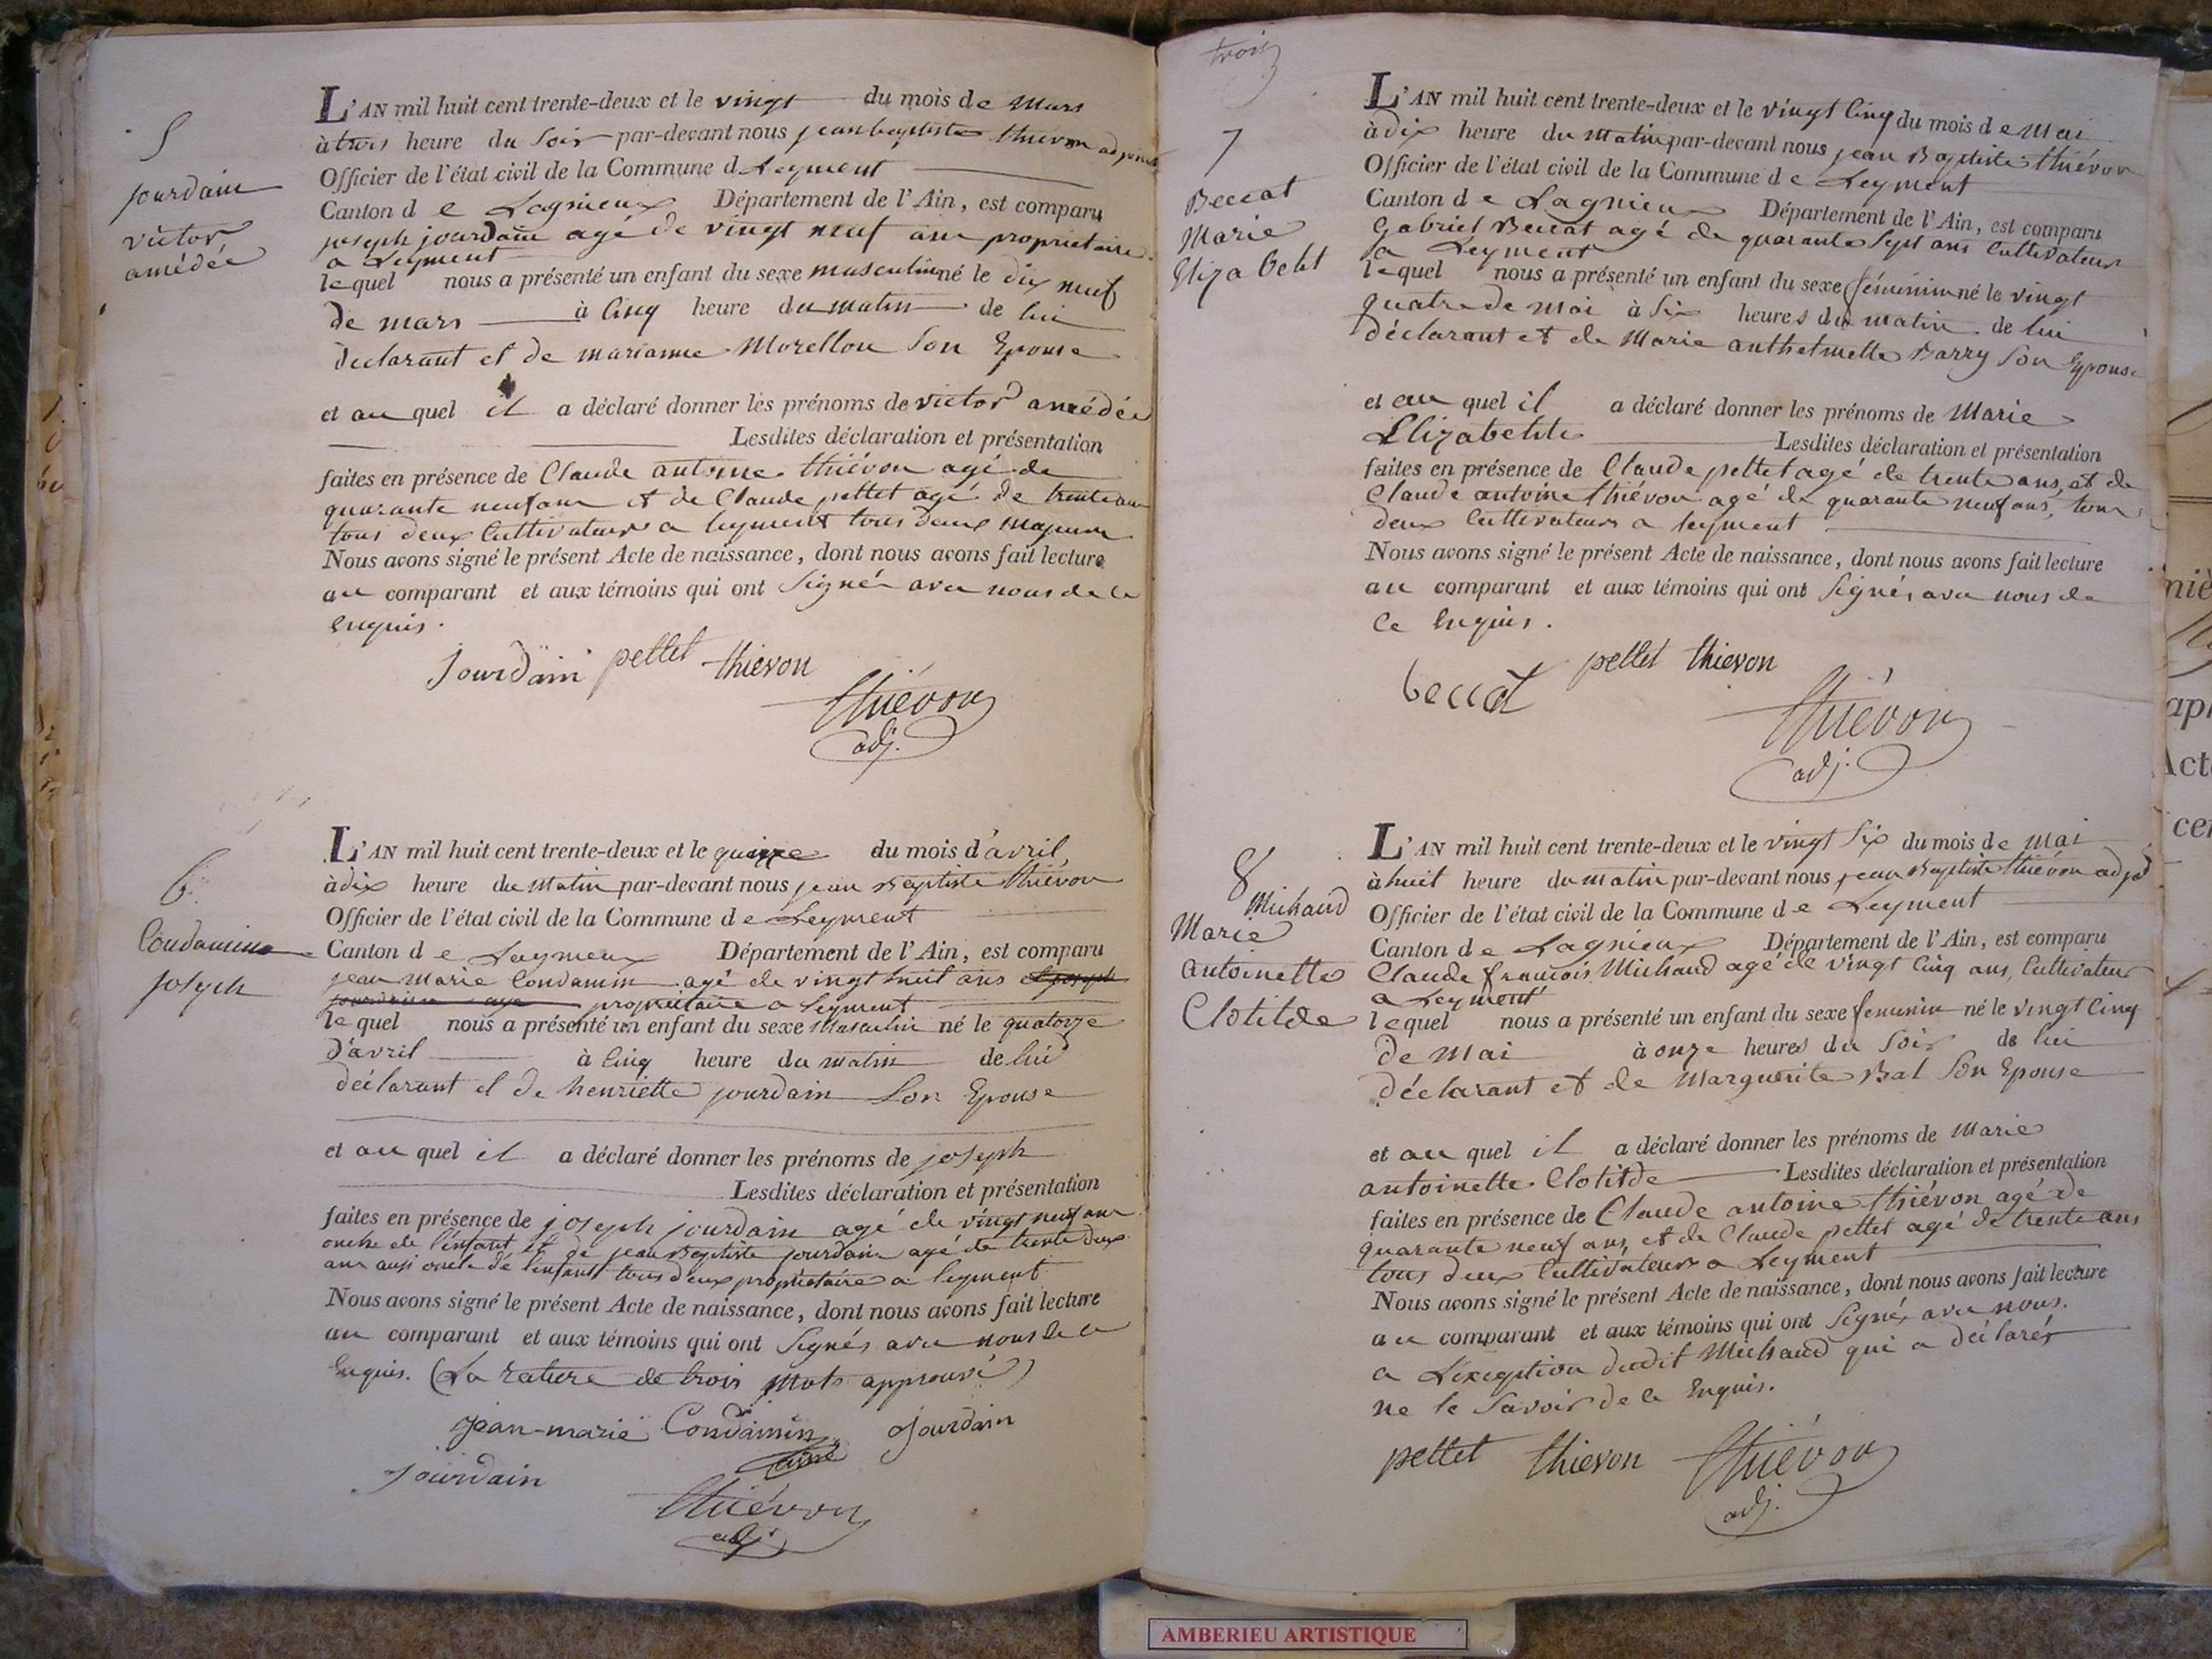 5
jourdain
victor
amédée
L'AN mil huit cent trente-deux et le vingt du mois de Mars
à trois heure du Soir par-devant nous jean baptiste thievon adjoint
Officier de l'état civil de la Commune d Leyment
Canton d e Lagnieux Département de l'Ain, est comparu
joseph jourdain agé de vingt neuf ans proprietaire
a Leyment
lequel nous a présenté un enfant du sexe masculin né le dix neuf
de mars à Cinq heure du matin de lui
declarant et de marianne Morellon Son Epouse
et au quel il a déclaré donner les prénoms de victor amédée
Lesdites déclaration et présentation
faites en présence de Claude antoine thiévon agé de
quarante neuf ans et de Claude pettet agé de trente ans
tous deux Cultivateurs a leyment tous deux majeurs
Nous avons signé le présent Acte de naissance, dont nous avons fait lecture
au comparant et aux témoins qui ont Signés avec nous de ce
Enquis.
Jourdain pettet thievon
thiévon
adj.
6
Condamin
joseph
L'AN mil huit cent trente-deux et le quinze du mois d'avril
à dix heure du Matin par-devant nous jean Baptiste thiévon
Officier de l'état civil de la Commune d e Leyment
Canton d e Lagnieux Département de l'Ain, est comparu
jean Marie Condamin agé de vingt huit ans et joseph
jourdain agé proprietaire a leyment
lequel nous a présenté un enfant du sexe Masculin né le quatorze
d'avril à Cinq heure du matin de lui
déclarant et de henriette jourdain Son Epouse
et au quel il a déclaré donner les prénoms de joseph
Lesdites déclaration et présentation
faites en présence de joseph jourdain agé de vingt neuf ans
oncle de l'enfant et de jean Baptiste jourdain agé de trente deux
ans aussi oncle de l'enfant tous deux propriétaire a leyment
Nous avons signé le présent Acte de naissance, dont nous avons fait lecture
au comparant et aux témoins qui ont Signés avec nous de ce
Enquis. (La rature de trois Mots approuvé)
jean-marie Condamin Jourdain
Jourdain
thiévon
adj.
trois
7
Beccat
Marie
Elizabeht
L'AN mil huit cent trente-deux et le vingt Cinq du mois d e Mai
à dix heure du Matin par-devant nous jean Baptiste thiévon
Officier de l'état civil de la Commune d e Leyment
Canton d e Lagnieux Département de l'Ain, est comparu
Gabriel Beccat agé de quarante Sept ans Cultivateur
a Leyment
lequel nous a présenté un enfant du sexe féminim né le vingt
quatre de Mai à Six heures du matin de lui
déclarant et de Marie anthelmette Barry Son Epouse
et au quel il a déclaré donner les prénoms de Marie
Elizabehte Lesdites déclaration et présentation
faites en présence de Claude pettet agé de trente ans, et de
Claude antoine thiévon agé de quarante neuf ans, tous
deux Cultivateurs a leyment
Nous avons signé le présent Acte de naissance, dont nous avons fait lecture
au comparant et aux témoins qui ont Signés avec nous de
Ce Enquis.
beccat pettet thievon
thiévon
adj.
8
Michaud
Marie
antoinette
Clotilde
L'AN mil huit cent trente-deux et le vingt Six du mois de mai
à huit heure du matin par-devant nous jean Baptiste thiévon adjoit
Officier de l'état civil de la Commune d e Leyment
Canton d e Lagnieux Département de l'Ain, est comparu
Claude françois Michaud agé de vingt Cinq ans, Cultivateur
a Leyment
lequel nous a présenté un enfant du sexe feminin né le vingt Cinq
de Mai à onze heures du Soir de lui
déclarant et de Marguerite Bal Son Epouse
et au quel il a déclaré donner les prénoms de Marie
antoinette Clotilde Lesdites déclaration et présentation
faites en présence de Claude antoine thiévon agé de
quarante neuf ans, et de Claude pettet agé de trente ans
tous deux Cultivateurs a Leyment
Nous avons signé le présent Acte de naissance, dont nous avons fait lecture
au comparant et aux témoins qui ont Signés avec nous.
a L'exception dudit Michaud qui a déclarés
ne le Savoir de ce Enquis.
pettet thievon thiévon
adj.
AMBERIEU ARTISTIQUE